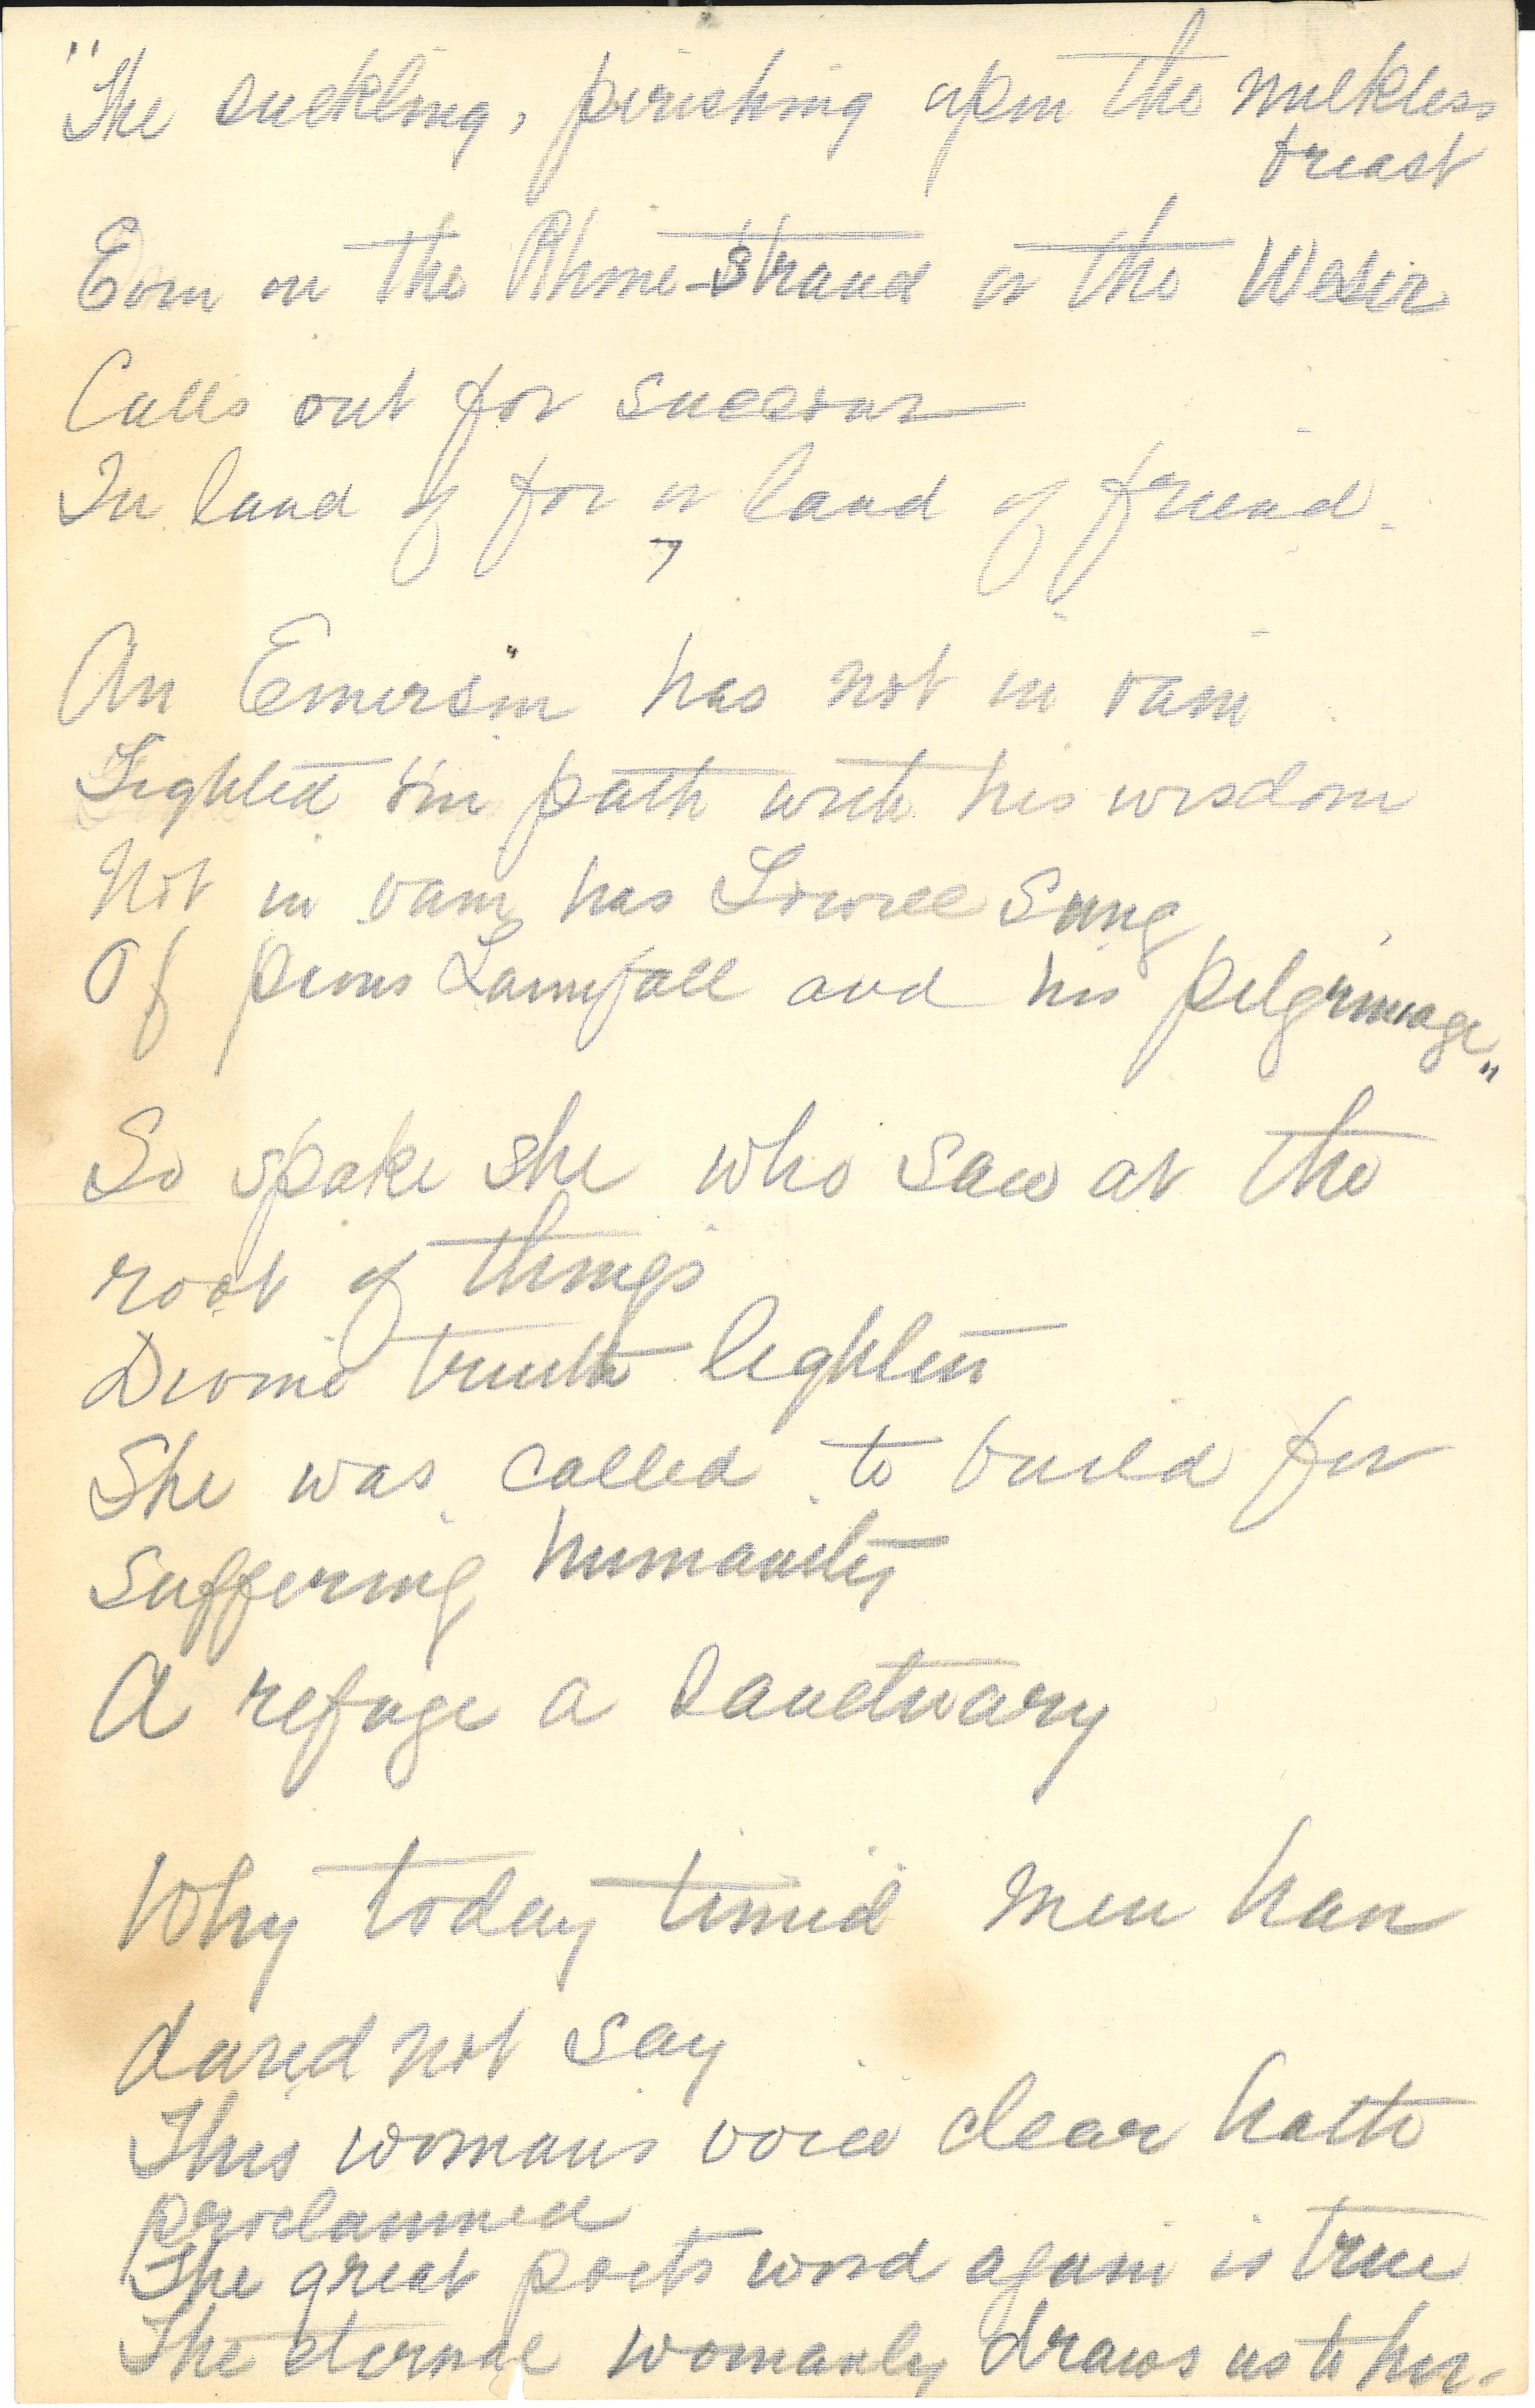 "The suckling, perishing upon the milkless
breast
Even on the Rhine-strand or the Weser
Calls out for succour
In land of foe or land of friend.
An Emerson has not in vain
Lighted our path with his wisdom
Not in vain has Lowell sung
Of pious Launfall and his pilgrimage"
So spake she who saw at the
root of things
Divine truth lighten
She was called to build for
suffering humanity
A refuge a Sanctuary
Why today timid men have
dared not say
This womans voice clear hath
proclaimed
The great poets word again is true
The eternal womanly draws us to her.